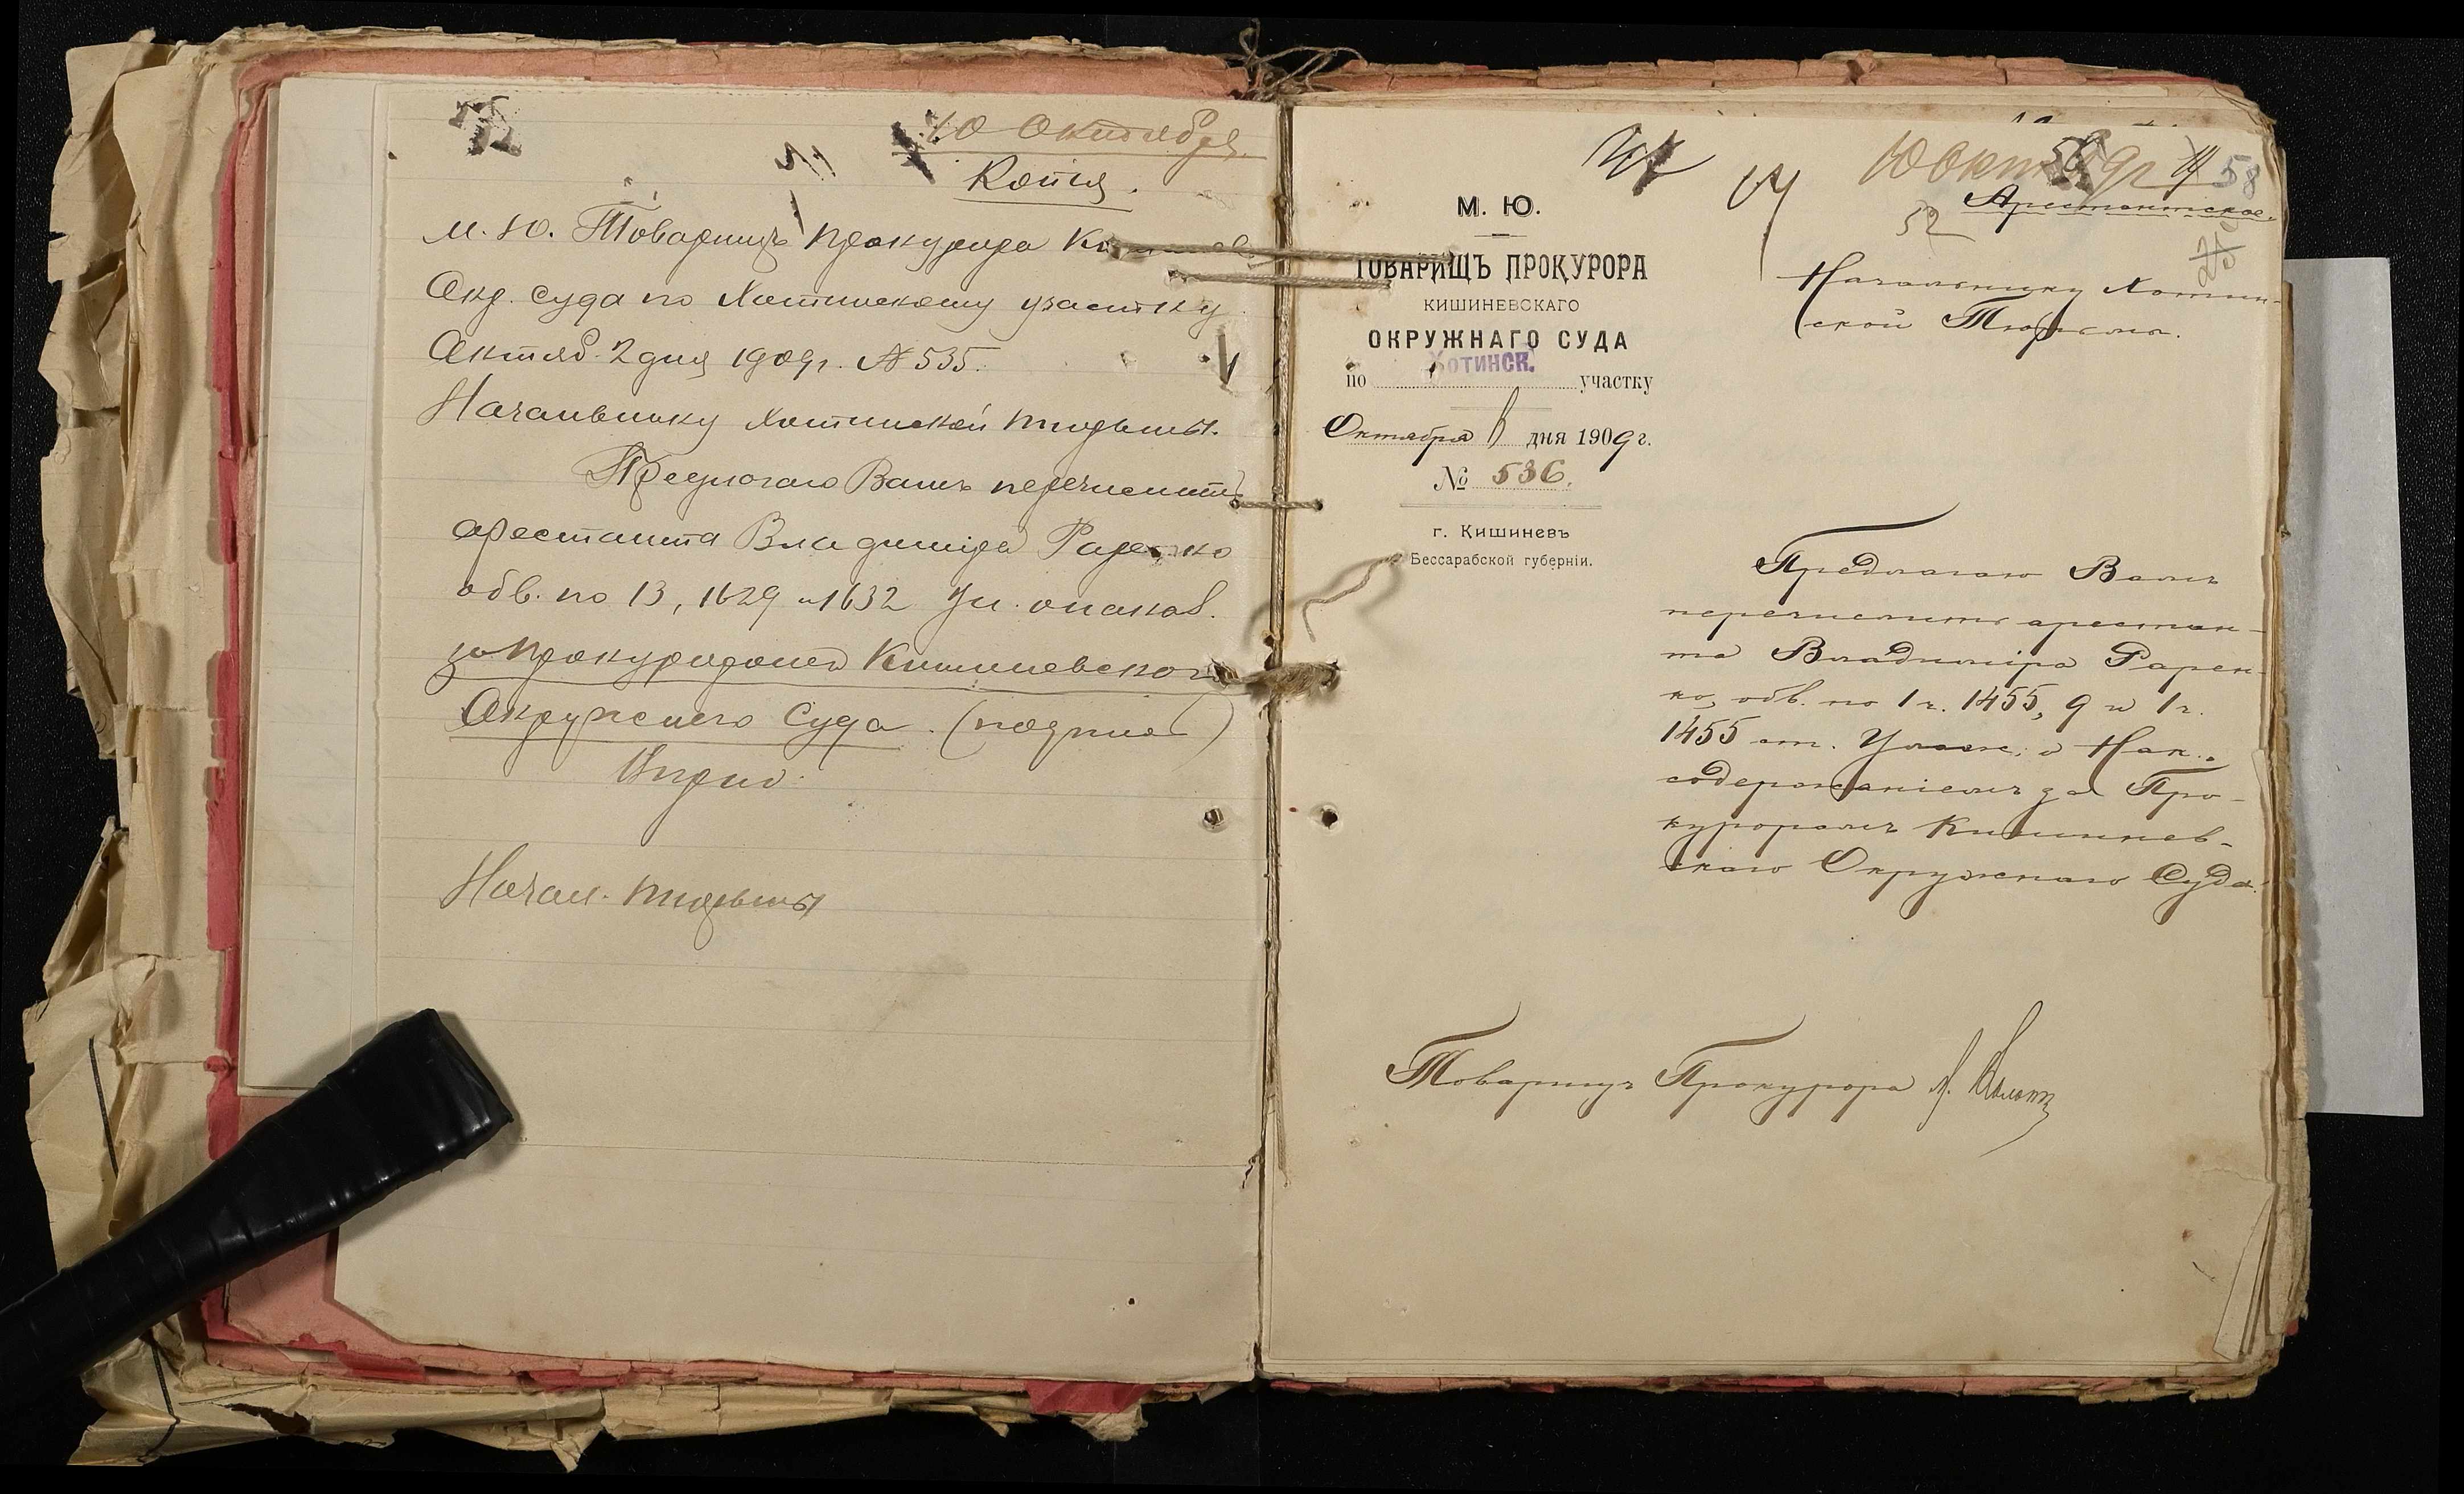 10 Октября.
Копія.
М. Ю. Товарищъ Прокурора
Окр. суда по Хотинскому участку
Октяб. 2 дня 1909г. № 535.
Начальнику Хотинской тюрьмы.
Предлогаю Вамъ перечислить
арестанта Владиміра Раренко
обв. по 13, 1629 и 1632 Ул. о наказ.
за прокуроромъ Кишиневскаго
Окружного Суда. (подпис)
Вѣрно:
Начал. тюрьмы
58
52
Арестантское.
М. Ю.
ТОВАРИЩЪ ПРОКУРОРА
КИШИНЕВСКАГО
ОКРУЖНАГО СУДА
по Хотинск. участку
Октября дня 1909 г.
№ 536.
г. Кишиневъ
Бессарабской губерніи.
Начальнику Хотин-
ской Тюрьмы.
Предлагаю Вамъ
перечислить арестан-
та Владиміра Рарен-
ко, обв. по 1 ч. 1455, 9 и 1 ч.
1455 ст. Улож. о Нак.,
содержаніемъ за Про-
куроромъ Кишинев-
скаго Окружнаго Суда.
Товарищъ Прокурора